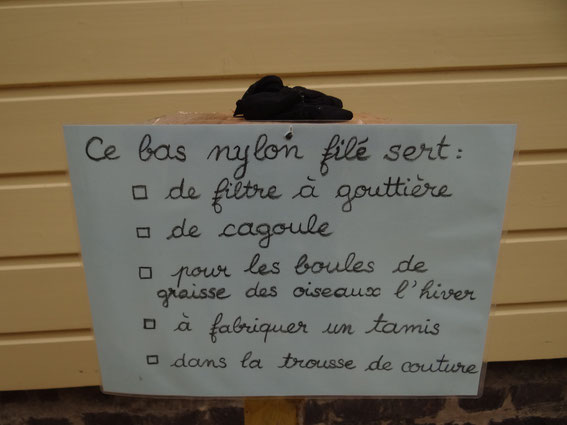 Ce bas nylon filé sert :
□ de filtre à gouttière
□ de cagoule
□ pour les boules de
graisse des oiseaux l'hiver
□ à fabriquer un tamis
□ dans la trousse de couture